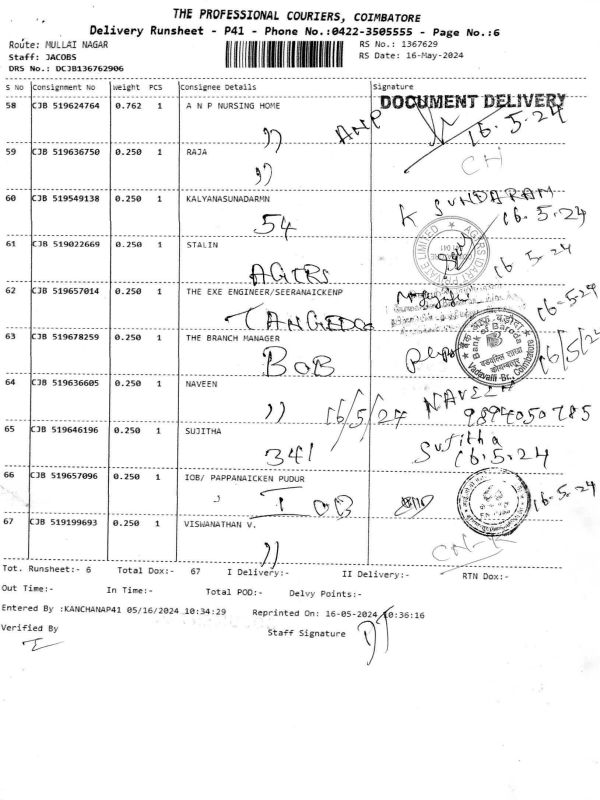 THE PROFESSIONAL COURIERS, COIMBATORE
Delivery Runsheet - P41 - Phone No.:0422-3505555 - Page No.:6
Route: MULLAI NAGAR
Staff: JACOBS
DRS No.: DCJB136762906
RS No.: 1367629
RS Date: 16-May-2024
S No Consignment No Weight PCS Consignee Details Signature
DOCUMENT DELIVERY
58 CJB 519624764 0.762 1 A N P NURSING HOME
)) ANP 16.5.24
59 CJB 519636750 0.250 1 RAJA
)) CN
60 CJB 519549138 0.250 1 KALYANASUNADARMN
54 K SUNDARAM
16.5.24
61 CJB 519022669 0.250 1 STALIN
AGIRS 16.5.24
62 CJB 519657014 0.250 1 THE EXE ENGINEER/SEERANAICKENP
TANGEDCO 16-5-24
63 CJB 519678259 0.250 1 THE BRANCH MANAGER
BOB 16/5/24
बैंक ऑफ़ बड़ौदा
Bank of Baroda
Vadavalli Br., Coimbatore
64 CJB 519636605 0.250 1 NAVEEN
)) 16/5/24 NAVEEN
9894050785
65 CJB 519646196 0.250 1 SUJITHA
341 Sujitha
16.5.24
66 CJB 519657096 0.250 1 IOB/ PAPPANAICKEN PUDUR
IOB 16-5-24
67 CJB 519199693 0.250 1 VISWANATHAN V.
)) CN-K
Tot. Runsheet:- 6 Total Dox:- 67 I Delivery:- II Delivery:- RTN Dox:-
Out Time:- In Time:- Total POD:- Delvy Points:-
Entered By :KANCHANAP41 05/16/2024 10:34:29 Reprinted On: 16-05-2024 10:36:16
Verified By
Staff Signature